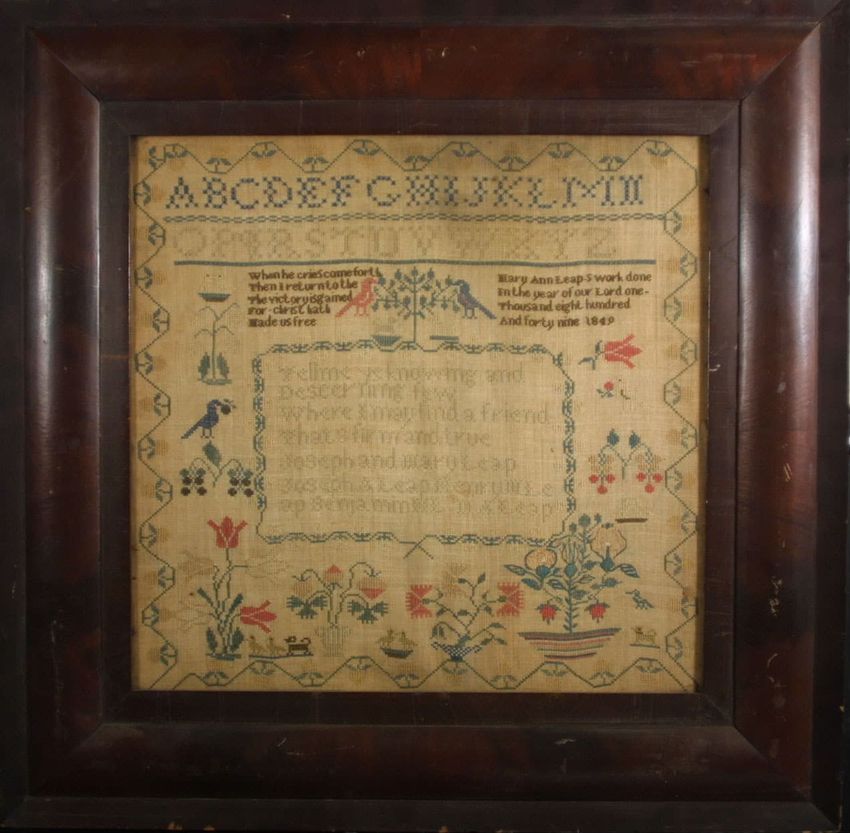 ABCDEFGHIJKLMN
OPQRSTUVWXYZ
When he cries come forth
Then I return to the
The victory is gained
For christ hath
Made us free
Mary Ann Leap-s work done
In the year of our Lord one-
Thousand eight hundred
And forty nine 1849
Tell me ye knowing and
Descerning few
Where I may find a friend
That s firm and true
Joseph and Mary Leap
Joseph A Leap Le
ap Benjamin A Leap